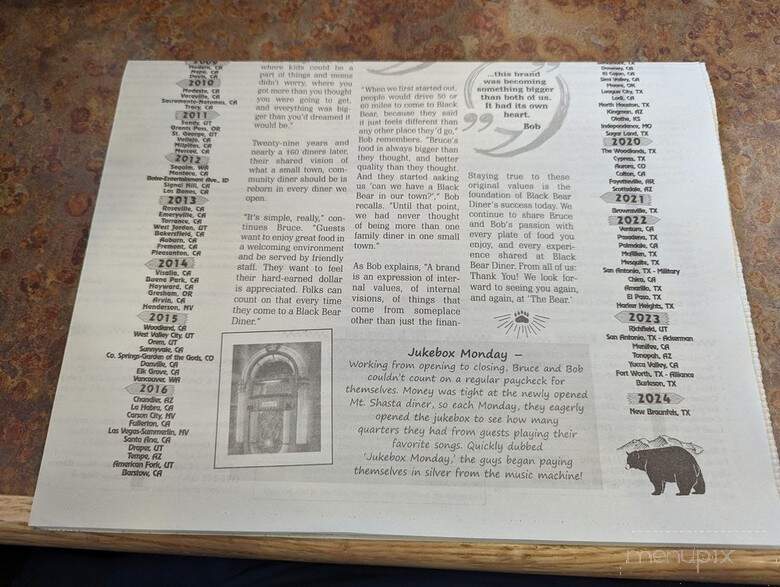 2009
Modern, CA
Napa, CA
Davis, CA
2010
Modesto, CA
Vacaville, CA
Sacramento-Natomas, CA
Tracy, CA
2011
Sandy, UT
Grants Pass, OR
St. George, UT
Vallejo, CA
Milpitas, CA
Merced, CA
2012
Sequim, WA
Manteca, CA
Boise-Entertainment Ave., ID
Signal Hill, CA
Los Banos, CA
2013
Roseville, CA
Emeryville, CA
Torrance, CA
West Jordan, UT
Bakersfield, CA
Auburn, CA
Fremont, CA
Pleasanton, CA
2014
Visalia, CA
Buena Park, CA
Hayward, CA
Gresham, OR
Arvin, CA
Henderson, NV
2015
Woodland, CA
West Valley City, UT
Orem, UT
Sunnyvale, CA
Co. Springs-Garden of the Gods, CO
Danville, CA
Elk Grove, CA
Vancouver, WA
2016
Chandler, AZ
La Habra, CA
Carson City, NV
Fullerton, CA
Las Vegas-Summerlin, NV
Santa Ana, CA
Draper, UT
Tempe, AZ
American Fork, UT
Barstow, CA
where kids could be a
part of things and moms
didn't worry, where you
got more than you thought
you were going to get,
and everything was big-
ger than you'd dreamed it
would be."
Twenty-nine years and
nearly a 160 diners later,
their shared vision of
what a small town, com-
munity diner should be is
reborn in every diner we
open.
"It's simple, really," con-
tinues Bruce. "Guests
want to enjoy great food in
a welcoming environment
and be served by friendly
staff. They want to feel
their hard-earned dollar
is appreciated. Folks can
count on that every time
they come to a Black Bear
Diner."
"When we first started out,
people would drive 50 or
60 miles to come to Black
Bear, because they said
it just feels different than
any other place they'd go,"
Bob remembers. "Bruce's
food is always bigger than
they thought, and better
quality than they thought.
And they started asking
us 'can we have a Black
Bear in our town?'," Bob
recalls. "Until that point,
we had never thought
of being more than one
family diner in one small
town."
As Bob explains, "A brand
is an expression of inter-
nal values, of internal
visions, of things that
come from someplace
other than just the finan-
...this brand
was becoming
something bigger
than both of us.
It had its own
heart.
Bob
Staying true to these
original values is the
foundation of Black Bear
Diner's success today. We
continue to share Bruce
and Bob's passion with
every plate of food you
enjoy, and every experi-
ence shared at Black
Bear Diner. From all of us:
Thank You! We look for-
ward to seeing you again,
and again, at 'The Bear.'
Jukebox Monday –
Working from opening to closing, Bruce and Bob
couldn't count on a regular paycheck for
themselves. Money was tight at the newly opened
Mt. Shasta diner, so each Monday, they eagerly
opened the jukebox to see how many
quarters they had from guests playing their
favorite songs. Quickly dubbed
'Jukebox Monday,' the guys began paying
themselves in silver from the music machine!
Downey, CA
El Cajon, CA
Simi Valley, CA
Moore, OK
League City, TX
Lodi, CA
North Houston, TX
Kingman, AZ
Olathe, KS
Independence, MO
Sugar Land, TX
2020
The Woodlands, TX
Cypress, TX
Aurora, CO
Colton, CA
Fayetteville, AR
Scottsdale, AZ
2021
Brownsville, TX
2022
Ventura, CA
Pasadena, TX
Palmdale, CA
McAllen, TX
Mesquite, TX
San Antonio, TX - Military
Chico, CA
Amarillo, TX
El Paso, TX
Harker Heights, TX
2023
Richfield, UT
San Antonio, TX - Ackerman
Menifee, CA
Tonopah, AZ
Yucca Valley, CA
Fort Worth, TX - Alliance
Burleson, TX
2024
New Braunfels, TX
menupix